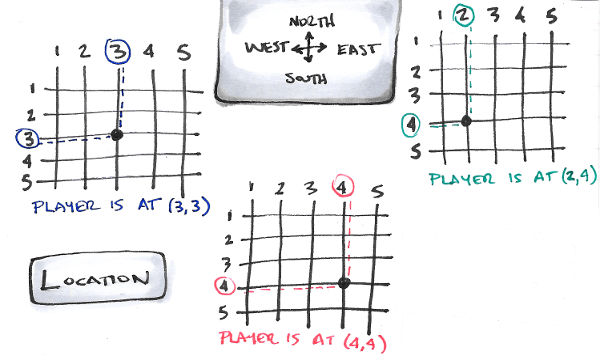 1 2 3 4 5
1
2
3
4
5
PLAYER IS AT (3,3)
NORTH
WEST EAST
SOUTH
1 2 3 4 5
1
2
3
4
5
PLAYER IS AT (2,4)
1 2 3 4 5
1
2
3
4
5
PLAYER IS AT (4,4)
LOCATION